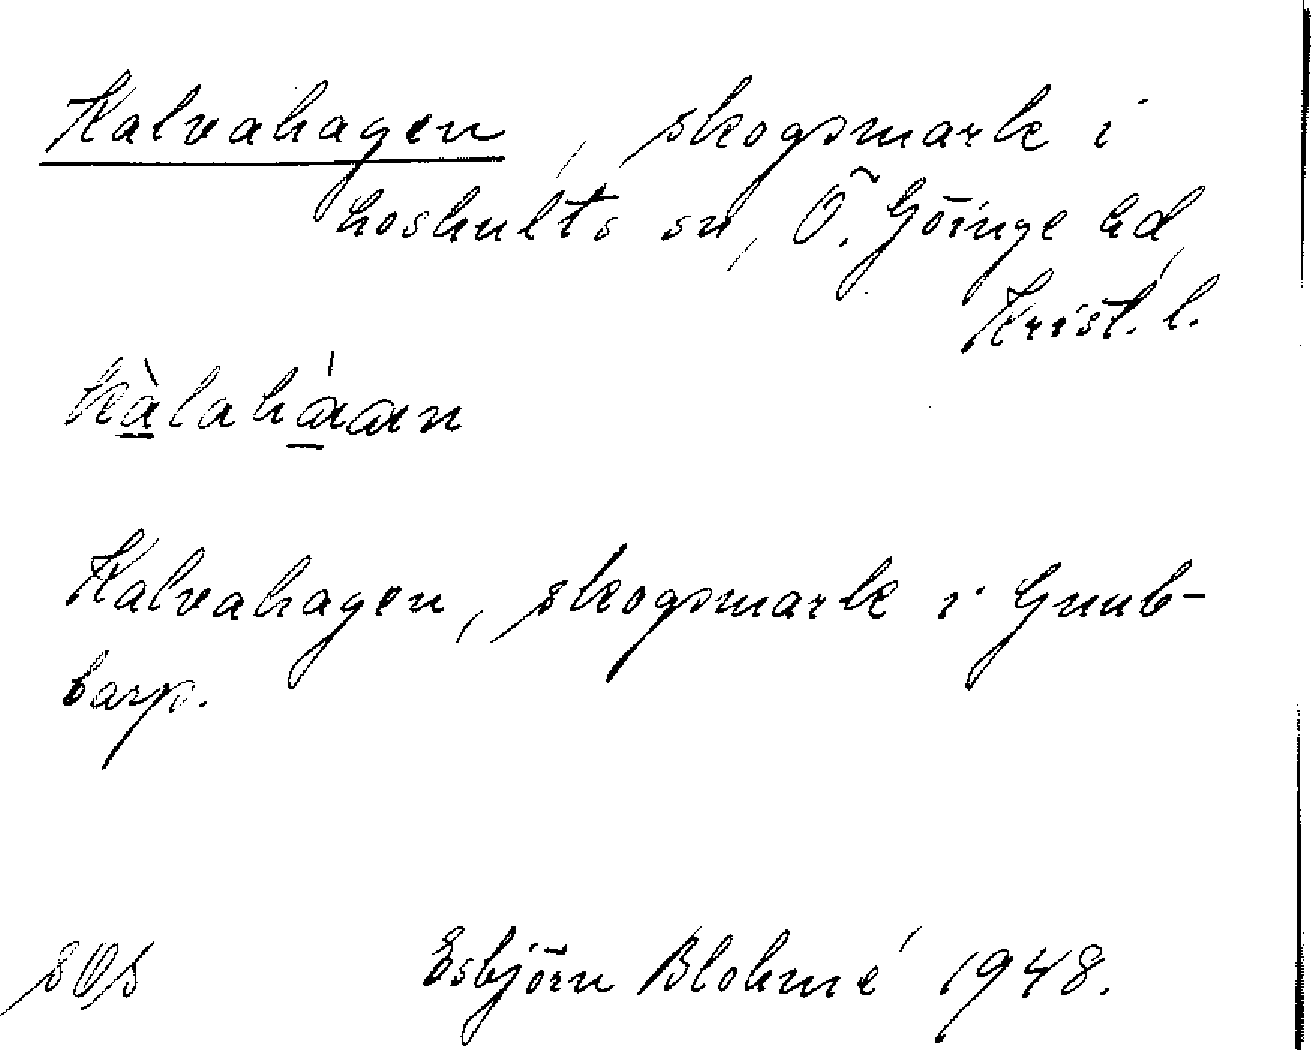 Kalvahagen, skogsmark i
Loshults sn, Ö. Göinge hd,
Krist. l.
kàlaháan
Kalvahagen, skogsmark i Gnub-
barp.
Esbjörn Blohmé 1948.